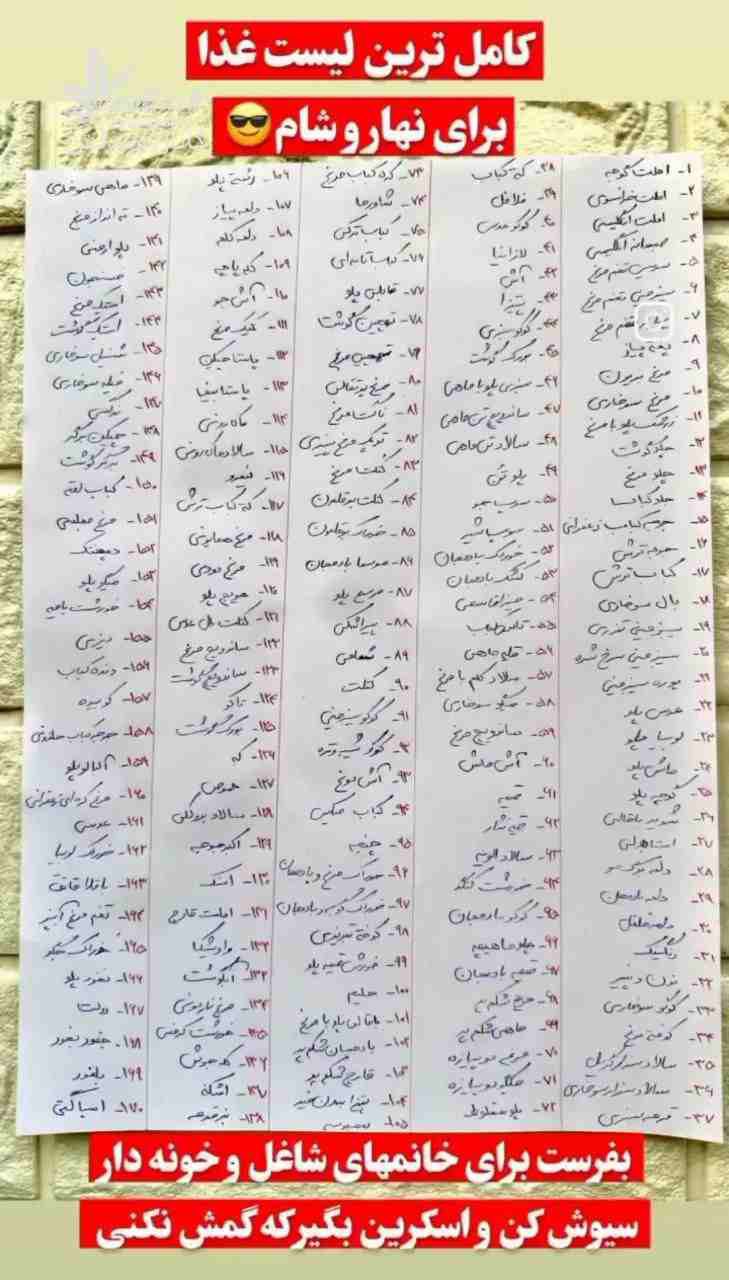 کامل ترین لیست غذا
برای نهار و شام😎
۱- املت گوجه
۲- املت فرانسوی
۳- املت انگلیسی
۴- صبحانه انگلیسی
۵- سوسیس تخم مرغ
۶- سیب زمینی تخم مرغ
۷- تخم مرغ
۸-
۹- مرغ بریون
۱۰- مرغ سوخاری
۱۱- زرشک پلو با مرغ
۱۲- چلو گوشت
۱۳- چلو مرغ
۱۴- چلو کباب
۱۵- جوجه کباب زعفرانی
۱۶- جوجه ترش
۱۷- کباب ترش
۱۸- بال سوخاری
۱۹- سیب زمینی تنوری
۲۰- سیب زمینی سرخ شده
۲۱- پوره سیب زمینی
۲۲- عدس پلو
۲۳- لوبیا پلو
۲۴- ماش پلو
۲۵- گوجه پلو
۲۶- شوید باقالی
۲۷- استامبولی
۲۸- دلمه برگ مو
۲۹- دلمه بادمجان
۳۰- دلمه فلفل
۳۱-
۳۲- نون و پنیر
۳۳- کوکو سوخاری
۳۴- کوفته مرغ
۳۵- سالاد سزار گریل
۳۶- سالاد سزار سوخاری
۳۷- قورمه سبزی
۳۸- کباب
۳۹- فلافل
۴۰- کوکو عدس
۴۱- لازانیا
۴۲- آش
۴۳- پیتزا
۴۴- کوکو سبزی
۴۵- خوراک گوشت
۴۶- سبزی پلو با ماهی
۴۷- ساندویچ تن ماهی
۴۸- سالاد تن ماهی
۴۹- پلو تن
۵۰- سوپ جو
۵۱- سوپ شیر
۵۲- خوراک بادمجان
۵۳- کشک بادمجان
۵۴- میرزا قاسمی
۵۵-
۵۶- قلیه ماهی
۵۷- سالاد کلم با مرغ
۵۸- میگو سوخاری
۵۹- ساندویچ مرغ
۶۰- آش ماش
۶۱- قیمه
۶۲- قیمه نثار
۶۳- سالاد الویه
۶۴- خورشت کنگر
۶۵- کوکو بادمجان
۶۶- چلو ماهیچه
۶۷- قیمه بادمجان
۶۸- مرغ شکم پر
۶۹- ماهی شکم پر
۷۰- مرغ دوپیازه
۷۱- میگو دوپیازه
۷۲- پلو مخلوط
۷۳- کباب مرغ
۷۴- شاورما
۷۵- کباب ترکی
۷۶- کباب تابه ای
۷۷- قابلی پلو
۷۸- ته چین گوشت
۷۹- ته چین مرغ
۸۰- مرغ پرتقالی
۸۱- ناگت مرغ
۸۲- مرغ پنیری
۸۳- کتلت مرغ
۸۴- کتلت بوقلمون
۸۵- خوراک بوقلمون
۸۶- موسما بادمجان
۸۷- مرصع پلو
۸۸- پیراشکی
۸۹- شامی
۹۰- کتلت
۹۱- کوکو سیب زمینی
۹۲- کوکو شیر و تره
۹۳- آش دوغ
۹۴- کباب چکین
۹۵- چنجه
۹۶- خوراک مرغ و بادمجان
۹۷- خوراک گوجه و بادمجان
۹۸- کوفته تبریزی
۹۹- خورشت قیمه پلو
۱۰۰- حلیم
۱۰۱- باقالی پلو با مرغ
۱۰۲- بادمجان شکم پر
۱۰۳- قارچ شکم پر
۱۰۴-
۱۰۵-
۱۰۶- رشته پلو
۱۰۷- دلمه پیاز
۱۰۸- دلمه کلم
۱۰۹- کله پاچه
۱۱۰- آش جو
۱۱۱- کیک مرغ
۱۱۲- پاستا چیکن
۱۱۳- پاستا بیف
۱۱۴- کاه بدنی
۱۱۵- سالاد ماکارونی
۱۱۶-
۱۱۷- کباب ترش
۱۱۸-
۱۱۹-
۱۲۰- هویج پلو
۱۲۱- کتلت
۱۲۲- ساندویچ مرغ
۱۲۳- ساندویچ گوشت
۱۲۴- تاکو
۱۲۵- بورک گوشت
۱۲۶-
۱۲۷- حمص
۱۲۸- سالاد بروکلی
۱۲۹- اکبر جوجه
۱۳۰- اسنک
۱۳۱- املت قارچ
۱۳۲- واویشکا
۱۳۳- آبگوشت
۱۳۴- مرغ ناردونی
۱۳۵- خورشت کرفس
۱۳۶- کله جوش
۱۳۷- اشکنه
۱۳۸-
۱۳۹- ماهی سوخاری
۱۴۰- ته انداز مرغ
۱۴۱- پلو ارمنی
۱۴۲-
۱۴۳- استیک مرغ
۱۴۴- استیک گوشت
۱۴۵- شنیسل سوخاری
۱۴۶- فیله سوخاری
۱۴۷- ژیگو
۱۴۸- چیکن برگر
۱۴۹- برگر گوشت
۱۵۰- کباب لقمه
۱۵۱- مرغ مجلسی
۱۵۲-
۱۵۳- میگو پلو
۱۵۴- خورشت بامیه
۱۵۵- دیزی
۱۵۶- دنده کباب
۱۵۷- کوبیده
۱۵۸-
۱۵۹- آلبالو پلو
۱۶۰- مرغ کره ای زعفرانی
۱۶۱- عدسی
۱۶۲- خوراک لوبیا
۱۶۳- باقلا قاتق
۱۶۴- تخم مرغ آبپز
۱۶۵- خوراک میگو
۱۶۶- نخود پلو
۱۶۷- دولما
۱۶۸-
۱۶۹- بلغور
۱۷۰- اسپاگتی
بفرست برای خانمهای شاغل و خونه دار
سیوش کن و اسکرین بگیر که گمش نکنی